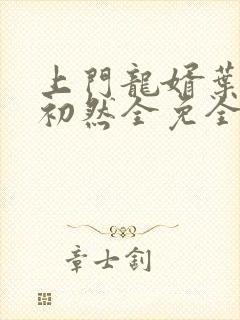 上門龍婿葉
初然全免全
章士釗